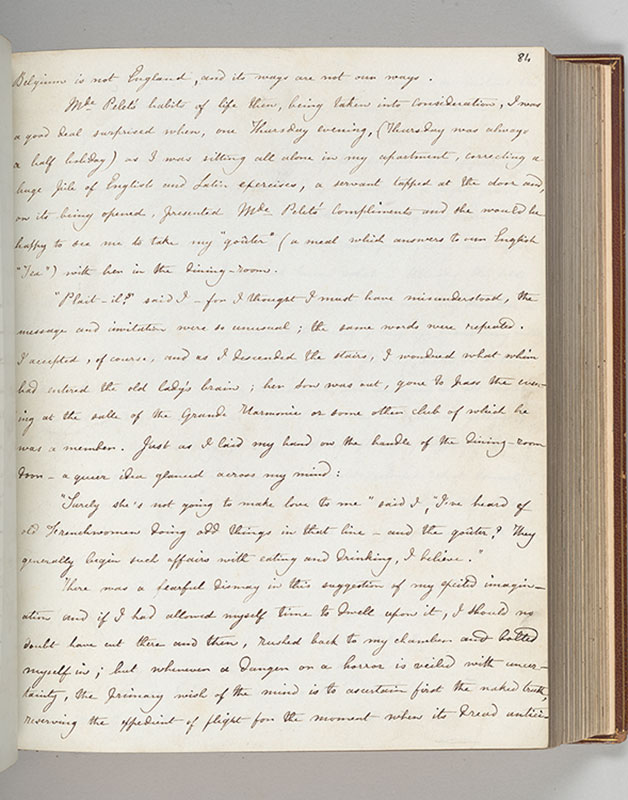 84
Belgium is not England, and its ways are not our ways.
Mde. Pelet's habits of life then, being taken into consideration, I was
a good deal surprised when, one Thursday evening, (Thursday was always
a half holiday) as I was sitting all alone in my apartment, correcting a
huge pile of English and Latin exercises, a servant tapped at the door and
on its being opened, presented Mde. Pelet's compliments and she would be
happy to see me to take my "goûter" (a meal which answers to our English
"Tea") with her in the dining-room.
"Plait-il?" said I - for I thought I must have misunderstood, the
message and invitation were so unusual; the same words were repeated.
I accepted, of course, and as I descended the stairs, I wondered what whim
had entered the old lady's brain; her son was out, gone to pass the even-
ing at the salle of the Grande Harmonie or some other club of which he
was a member. Just as I laid my hand on the handle of the dining-room
door - a queer idea glanced across my mind:
"Surely she's not going to make love to me" said I, "I've heard of
old Frenchwomen doing odd things in that line - and the goûter? They
generally begin such affairs with eating and drinking, I believe."
There was a fearful dismay in this suggestion of my excited imagin-
ation and if I had allowed myself time to dwell upon it, I should no
doubt have cut there and then, rushed back to my chamber and bolted
myself in; but whenever a danger or a horror is veiled with uncer-
tainty, the primary wish of the mind is to ascertain first the naked truth,
reserving the expedient of flight for the moment when its dread antici-